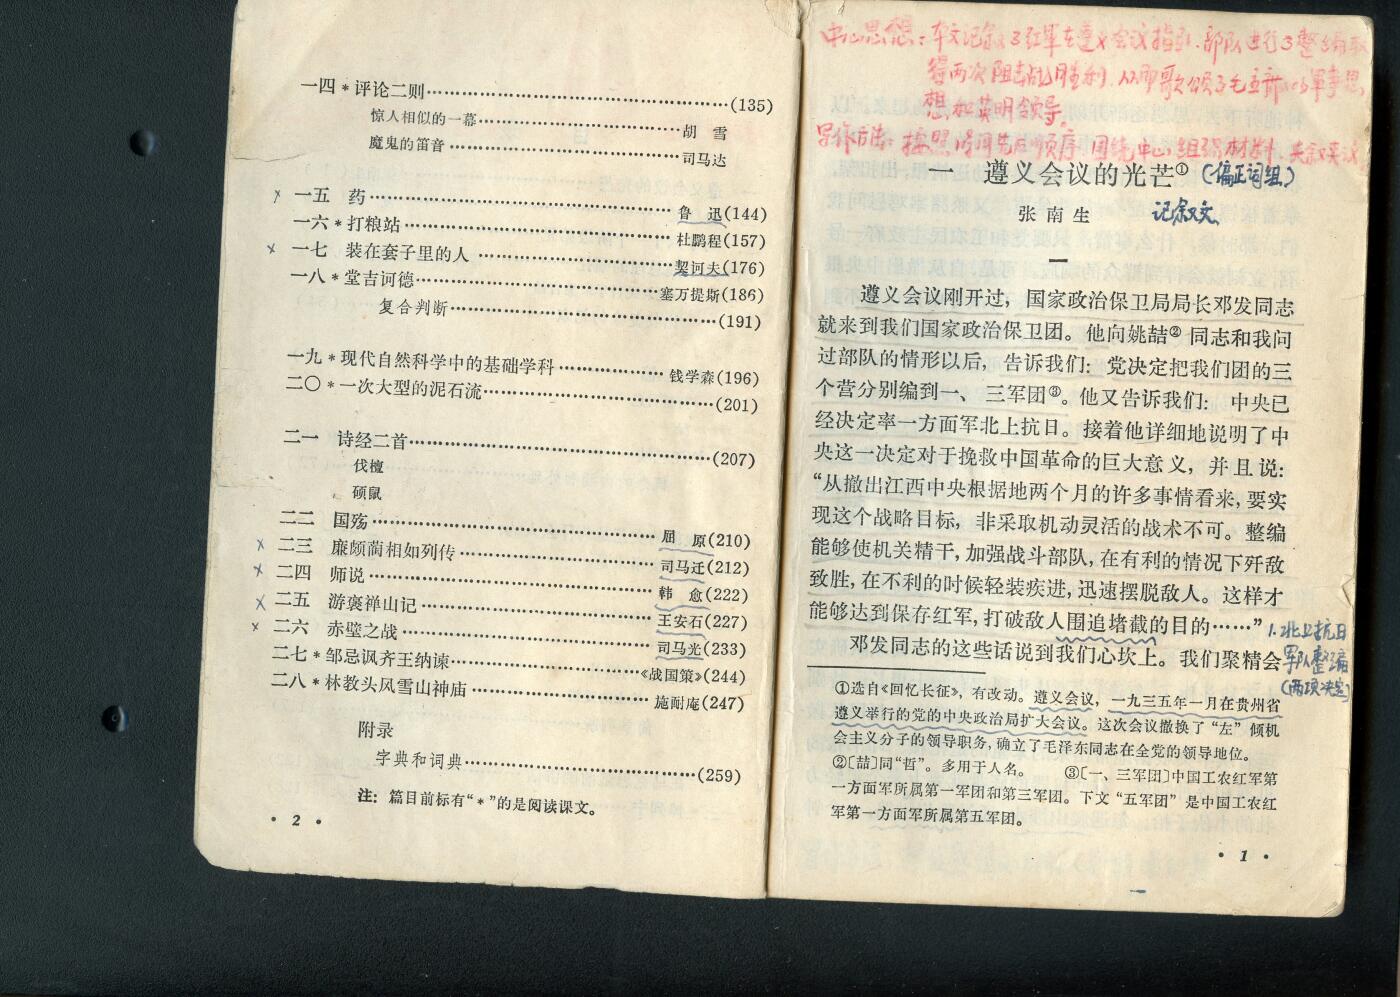 一四*评论二则……(135)
惊人相似的一幕……胡 雪
魔鬼的笛音……司马达
一五 药……鲁 迅(144)
一六*打粮站……杜鹏程(157)
一七 装在套子里的人……契诃夫(176)
一八*堂吉诃德……塞万提斯(186)
复合判断……(191)
一九*现代自然科学中的基础学科……钱学森(196)
二〇*一次大型的泥石流……(201)
二一 诗经二首……(207)
伐檀
硕鼠
二二 国殇……屈 原(210)
二三 廉颇蔺相如列传……司马迁(212)
二四 师说……韩 愈(222)
二五 游褒禅山记……王安石(227)
二六 赤壁之战……司马光(233)
二七*邹忌讽齐王纳谏……《战国策》(244)
二八*林教头风雪山神庙……施耐庵(247)
附录
字典和词典……(259)
注：篇目前标有“*”的是阅读课文。
• 2 •
中心思想：本文记叙了红军在遵义会议指引，部队进行了整编取
得两次阻击战胜利，从而歌颂了毛主席的军事思
想和英明领导。
写作方法：按照时间先后顺序，围绕中心组织材料，夹叙夹议
一 遵义会议的光芒① (偏正词组)
张南生 记叙文
一
遵义会议刚开过，国家政治保卫局局长邓发同志
就来到我们国家政治保卫团。他向姚喆②同志和我问
过部队的情形以后，告诉我们：党决定把我们团的三
个营分别编到一、三军团③。他又告诉我们：中央已
经决定率一方面军北上抗日。接着他详细地说明了中
央这一决定对于挽救中国革命的巨大意义，并且说：
“从撤出江西中央根据地两个月的许多事情看来，要实
现这个战略目标，非采取机动灵活的战术不可。整编
能够使机关精干，加强战斗部队，在有利的情况下歼敌
致胜，在不利的时候轻装疾进，迅速摆脱敌人。这样才
能够达到保存红军，打破敌人围追堵截的目的……”
1.北上抗日
军队整编
(两项决定)
邓发同志的这些话说到我们心坎上。我们聚精会
①选自《回忆长征》，有改动。遵义会议，一九三五年一月在贵州省
遵义举行的党的中央政治局扩大会议。这次会议撤换了“左”倾机
会主义分子的领导职务，确立了毛泽东同志在全党的领导地位。
②〔喆〕同“哲”。多用于人名。 ③〔一、三军团〕中国工农红军第
一方面军所属第一军团和第三军团。下文“五军团”是中国工农红
军第一方面军所属第五军团。
• 1 •